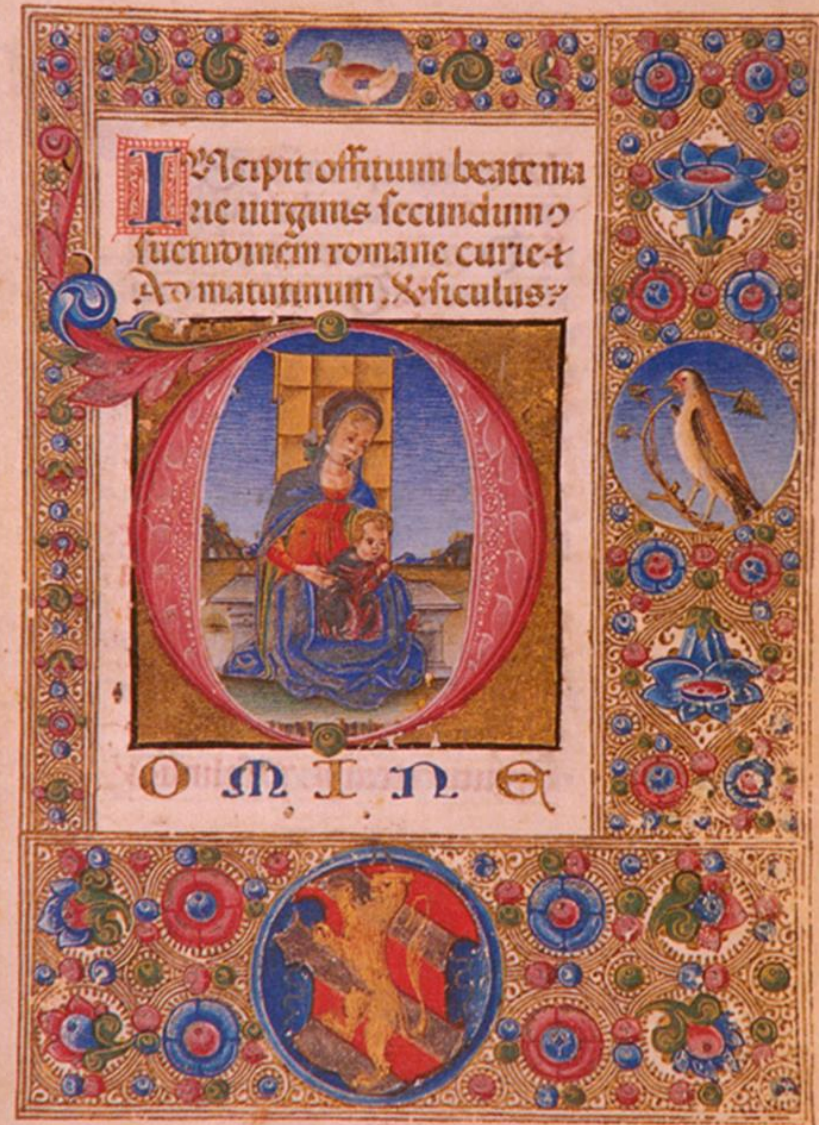 INcipit offitium beate ma
rie uirginis secundum ꝯ
suetudinem romane curie·⁊
Ad matutinum. ℣siculus:
D
OMINE